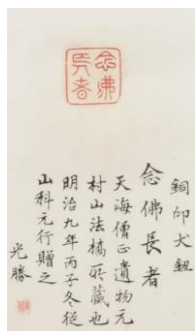 念佛長者
銅印犬鈕
念佛長者
天海僧正遺物元
村山法橋所藏也
明治九年丙子冬從
山科元行贈之
光勝